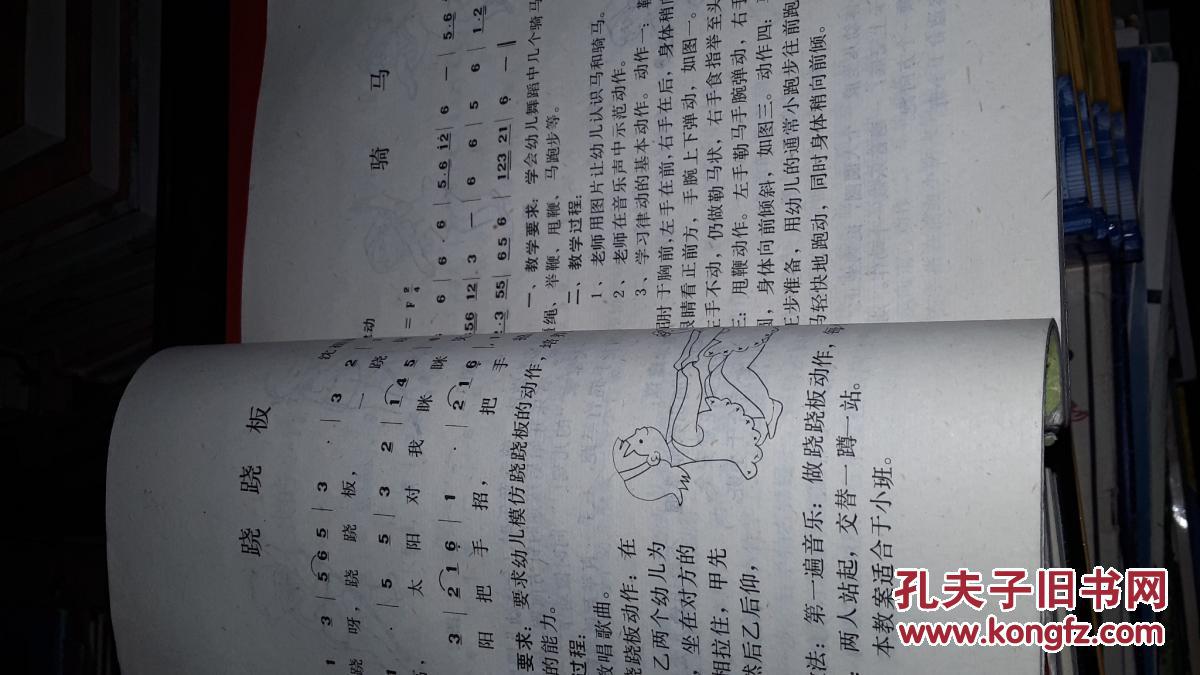 跷 跷 板
3 | 5 6 5 | 3 · | 3 2 |
跷 呀, 跷 跷 板, 一 跷
· | 5 5 | 3 2 | 1 4 5
太 阳 对 我 眯 眯
3 | 2 1 6 | 1 · | 2 1 6
阳 把 手 招, 把 手
要求: 要求幼儿模仿跷跷板的动作,
的能力。
过程:
教唱歌曲。
跷跷板动作: 在
乙两个幼儿为
, 坐在对方的
相拉住, 甲先
然后乙后仰,
法: 第一遍音乐: 做跷跷板动作,
两人站起, 交替一蹲一站。
本教案适合于小班。
骑 马
= F 2/4
6 | 6 · 6 | 5·6 1 2 | 6 — | 5·6
5 6 1 2 | 3 — | 6 6 | 5 6 | 1·2
·3 5 5 | 6 5 6 | 1 2 3 2 1 | 6 — ‖
一、教学要求: 学会幼儿舞蹈中几个骑马
绳、举鞭、甩鞭、马跑步等。
二、教学过程:
1、老师用图片让幼儿认识马和骑马。
2、老师在音乐声中示范动作。
3、学习律动的基本动作。动作一: 勒
肘于胸前, 左手在前, 右手在后, 身体稍向
眼睛看正前方, 手腕上下弹动, 如图一。
左手不动, 仍做勒马状、右手食指举至头
三: 甩鞭动作。左手勒马手腕弹动, 右手
, 身体向前倾斜, 如图三。动作四: 马
正步准备, 用幼儿的通常小跑步往前跑
马轻快地跑动, 同时身体稍向前倾。
孔夫子旧书网
www.kongfz.com